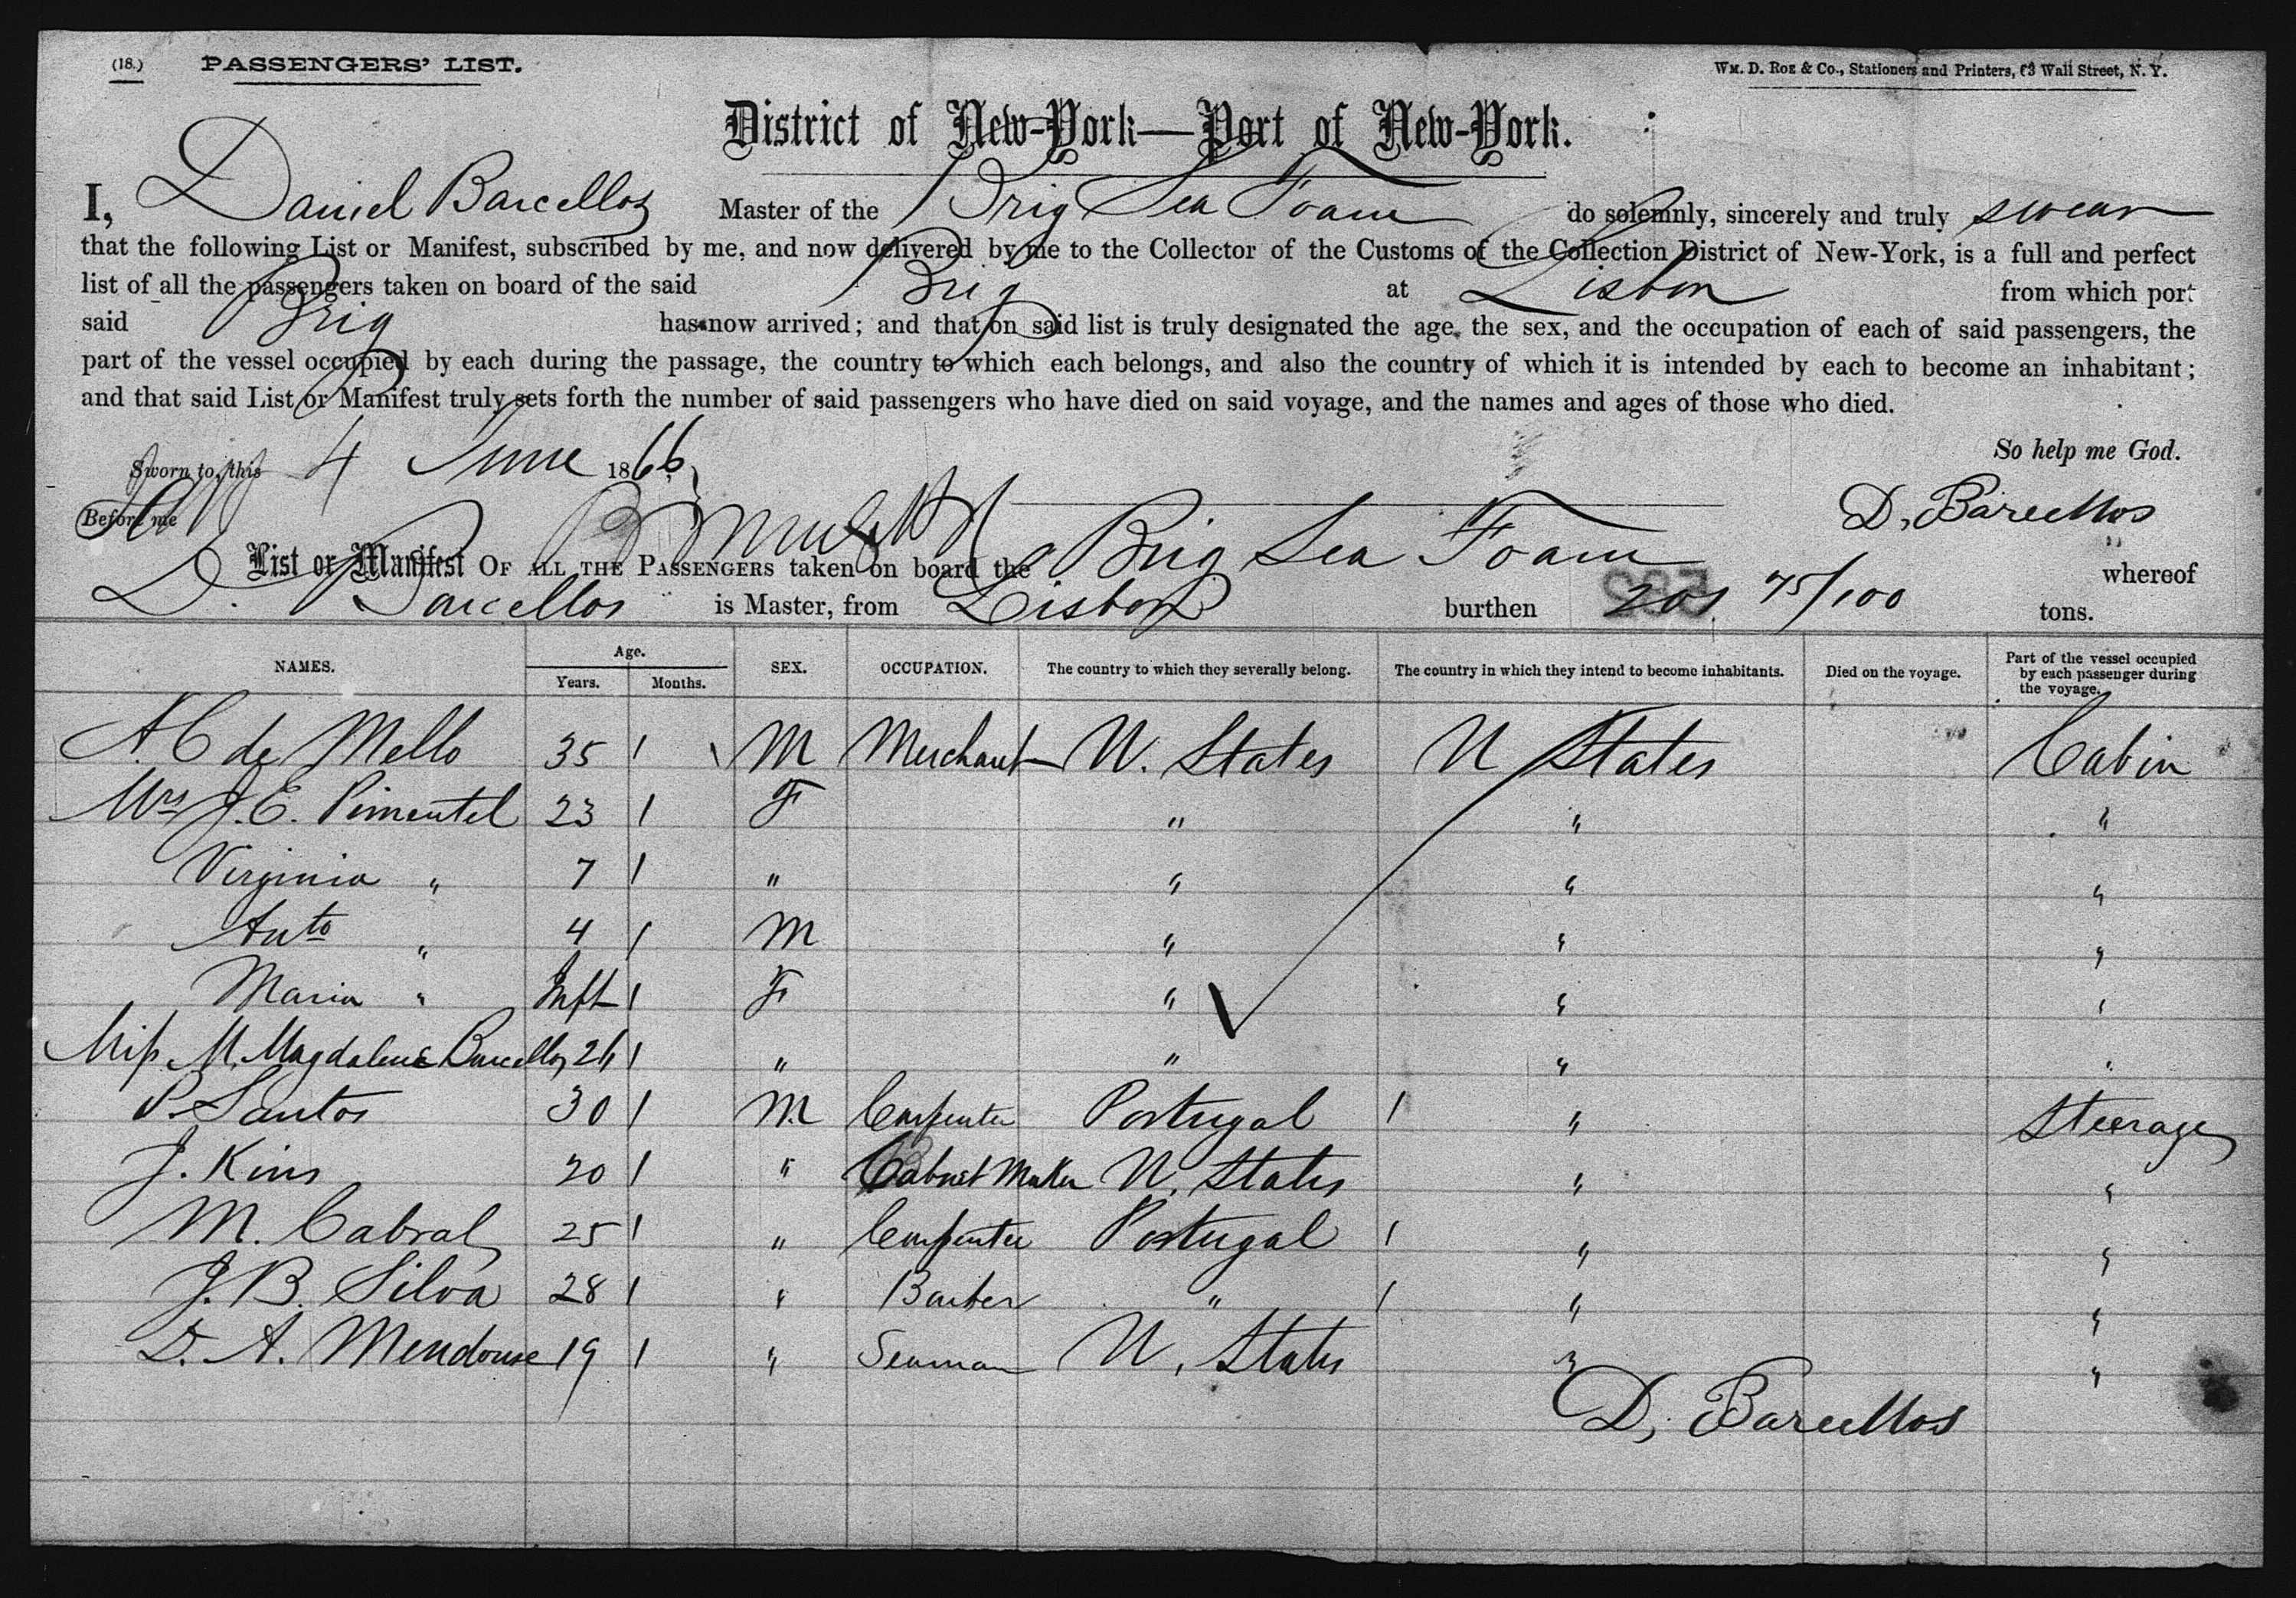 (18.) PASSENGERS' LIST.
WM. D. ROE & Co., Stationers and Printers, 63 Wall Street, N. Y.
District of New-York—Port of New-York.
I, Daniel Barcellos Master of the Brig Sea Foam do solemnly, sincerely and truly swear
that the following List or Manifest, subscribed by me, and now delivered by me to the Collector of the Customs of the Collection District of New-York, is a full and perfect
list of all the passengers taken on board of the said Brig at Lisbon from which port
said Brig has now arrived; and that on said list is truly designated the age, the sex, and the occupation of each of said passengers, the
part of the vessel occupied by each during the passage, the country to which each belongs, and also the country of which it is intended by each to become an inhabitant;
and that said List or Manifest truly sets forth the number of said passengers who have died on said voyage, and the names and ages of those who died.
So help me God.
Sworn to, this 4 June 1866
Before me
D. Barcellos
List or Manifest OF ALL THE PASSENGERS taken on board the Brig Sea Foam whereof
D. Barcellos is Master, from Lisbon burthen 201 75/100 tons.
NAMES. Age. Years. Months. SEX. OCCUPATION. The country to which they severally belong. The country in which they intend to become inhabitants. Died on the voyage. Part of the vessel occupied by each passenger during the voyage.
A. C de Mello 35 / M Merchant U. States U States Cabin
Mrs J. E. Pimentel 23 / F " " "
Virginia " 7 / " " " "
Anto " 4 / M " " "
Maria " Inft / F " " "
Miss M. Magdalena Barcellos 26 / " " " "
P. Santos 30 / M Carpenter Portugal / " Steerage
J. Kins 20 / " Cabinet Maker U. States " "
M. Cabral 25 / " Carpenter Portugal / " "
J. B. Silva 28 / " Barber " / " "
D. A. Mendouse 19 / " Seaman U. States " "
D. Barcellos